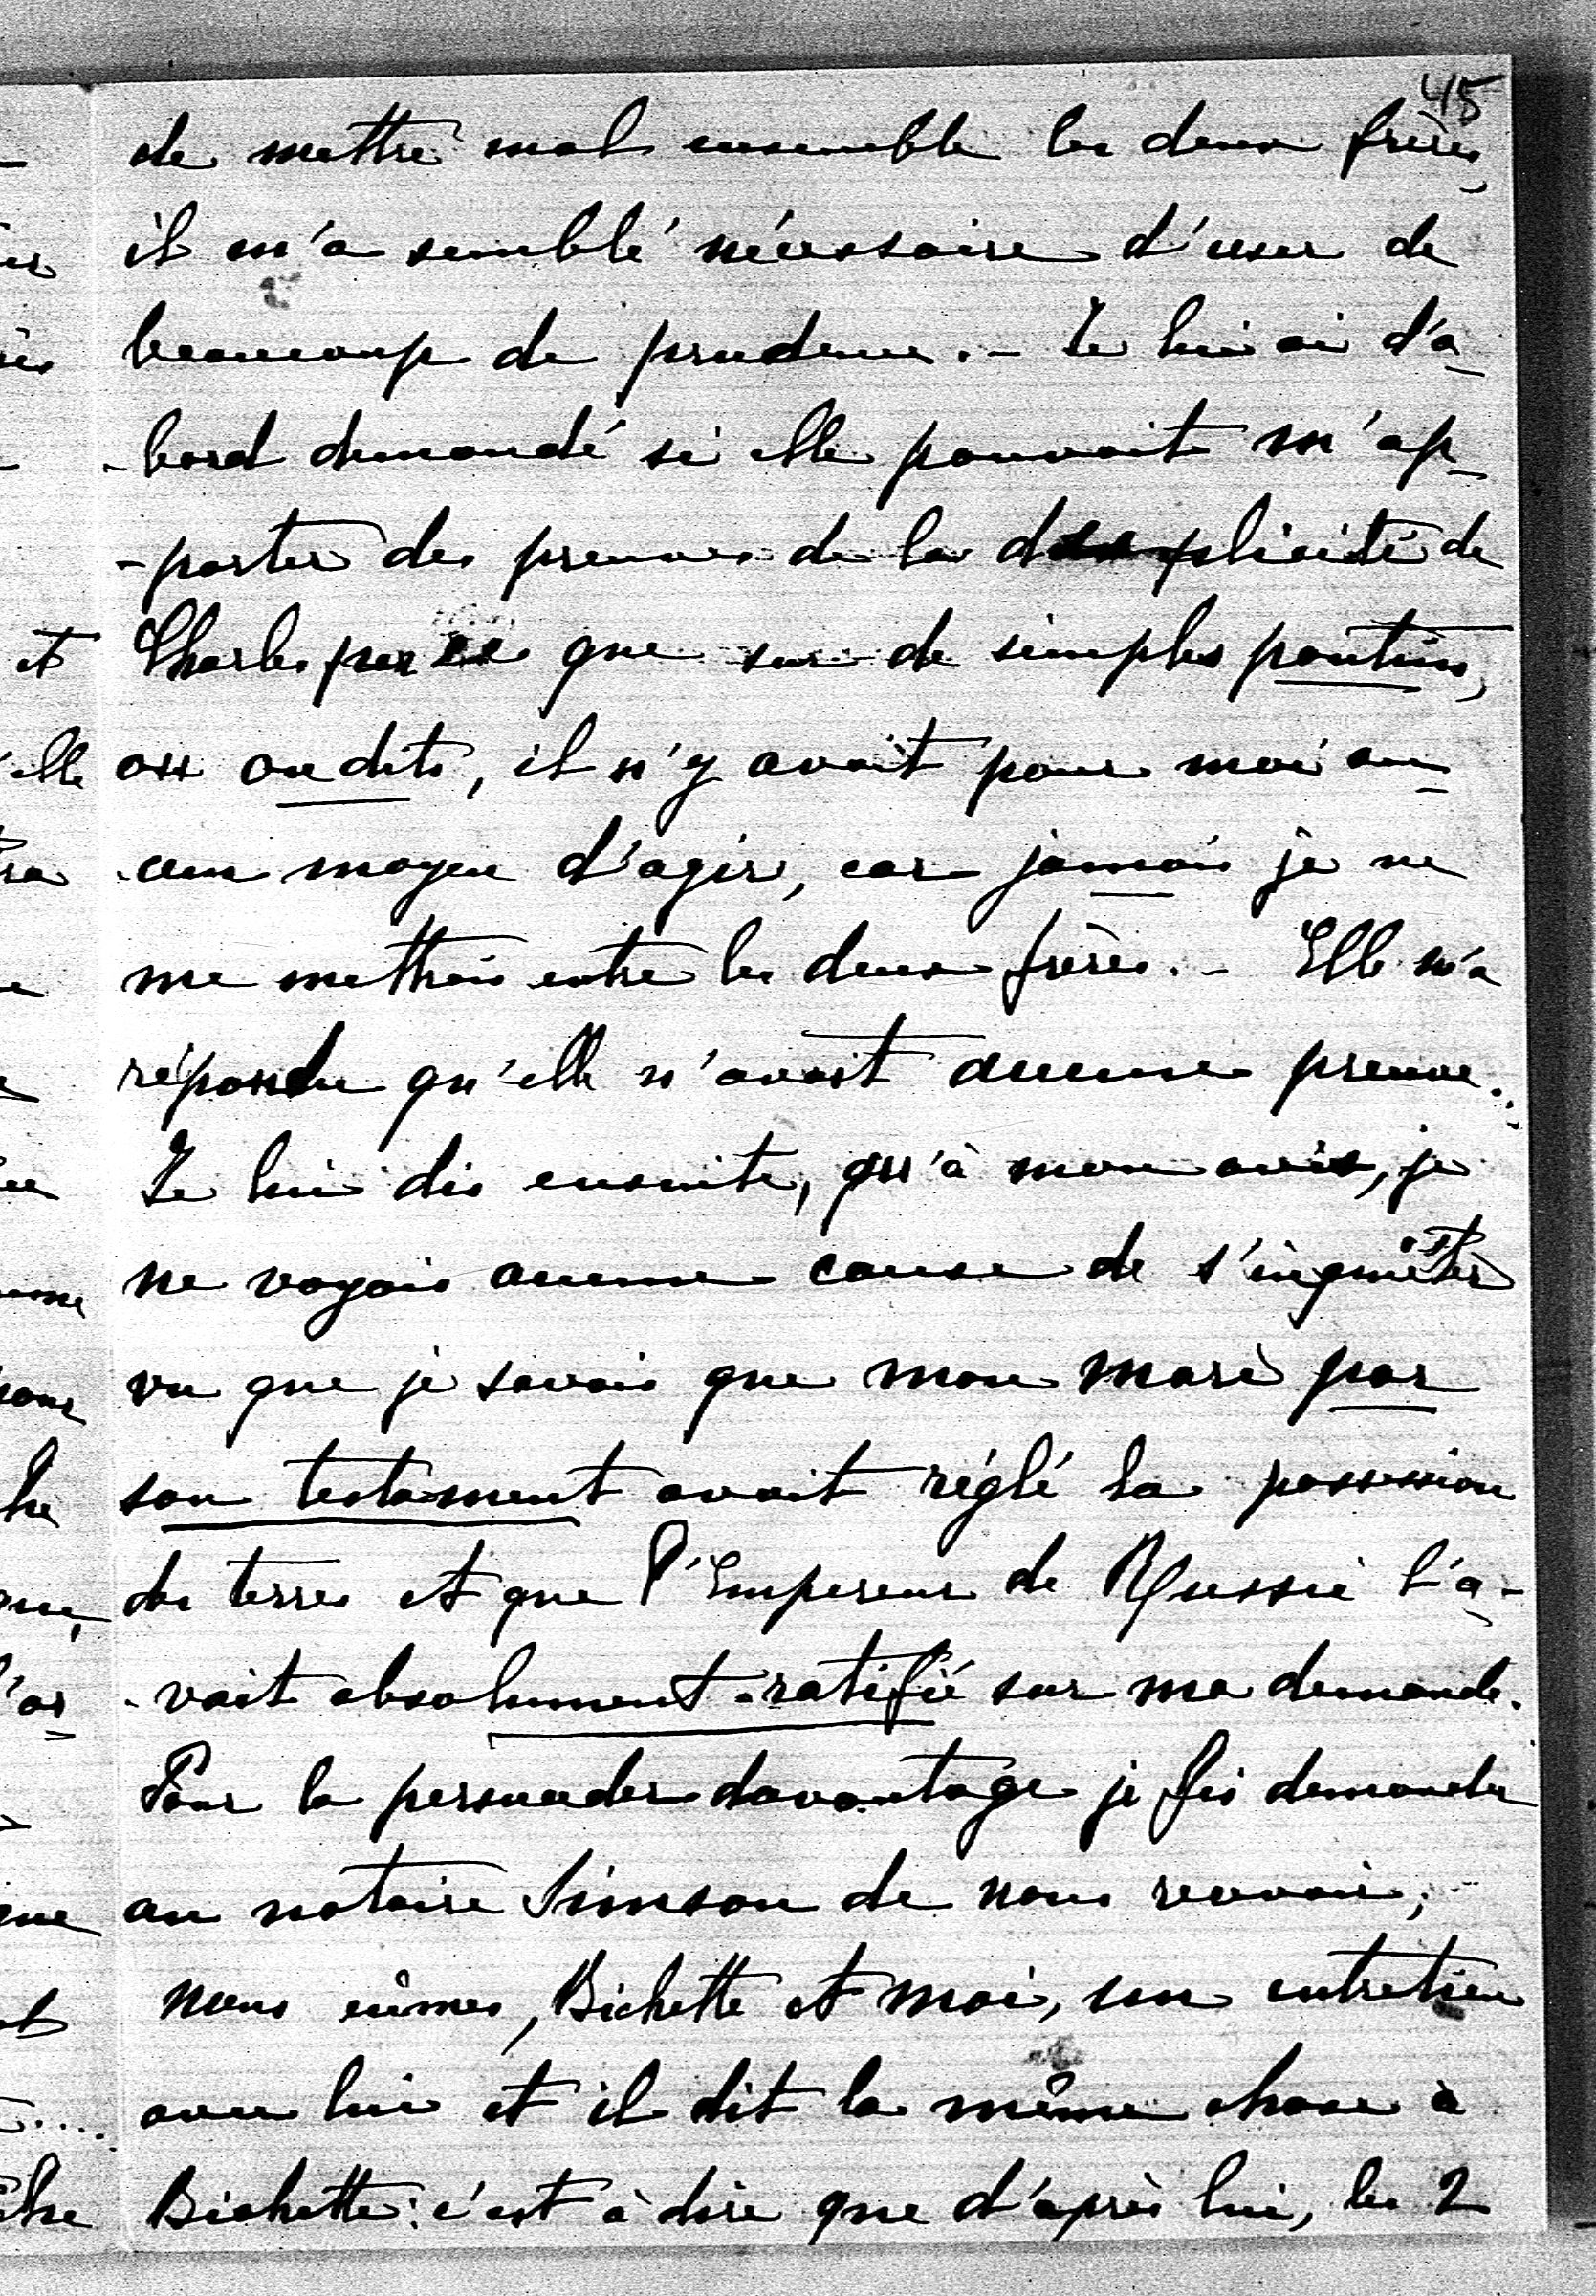 45
de mettre mal ensemble les deux frères
il m'a semblé nécessaire d'user de
beaucoup de prudence. - Je lui ai d'a-
-bord demandé si elle pouvait m'ap-
-porter des preuves de la duplicité de
Charles parce que sur de simples
ou on dits, il n'y avait pour moi au-
-cun moyen d'agir, car jamais je ne
me mettrais entre les deux frères. - Elle m'a
répondu qu'elle n'avait aucune preuve..
Je lui dis ensuite, qu'à mon avis, je
ne voyais aucune cause de s'inquiéter
vu que je savais que mon mari par
son testament avait réglé la possession
des terres et que l'Empereur de Russie l'a-
-vait absolument ratifié sur ma demande.
Pour la persuader davantage je fis demander
au notaire Simson de nous revoir;
nous eûmes, Bichette et moi, un entretien
avec lui et il dit la même chose à
Bichette: c'est à dire que d'après lui, les 2